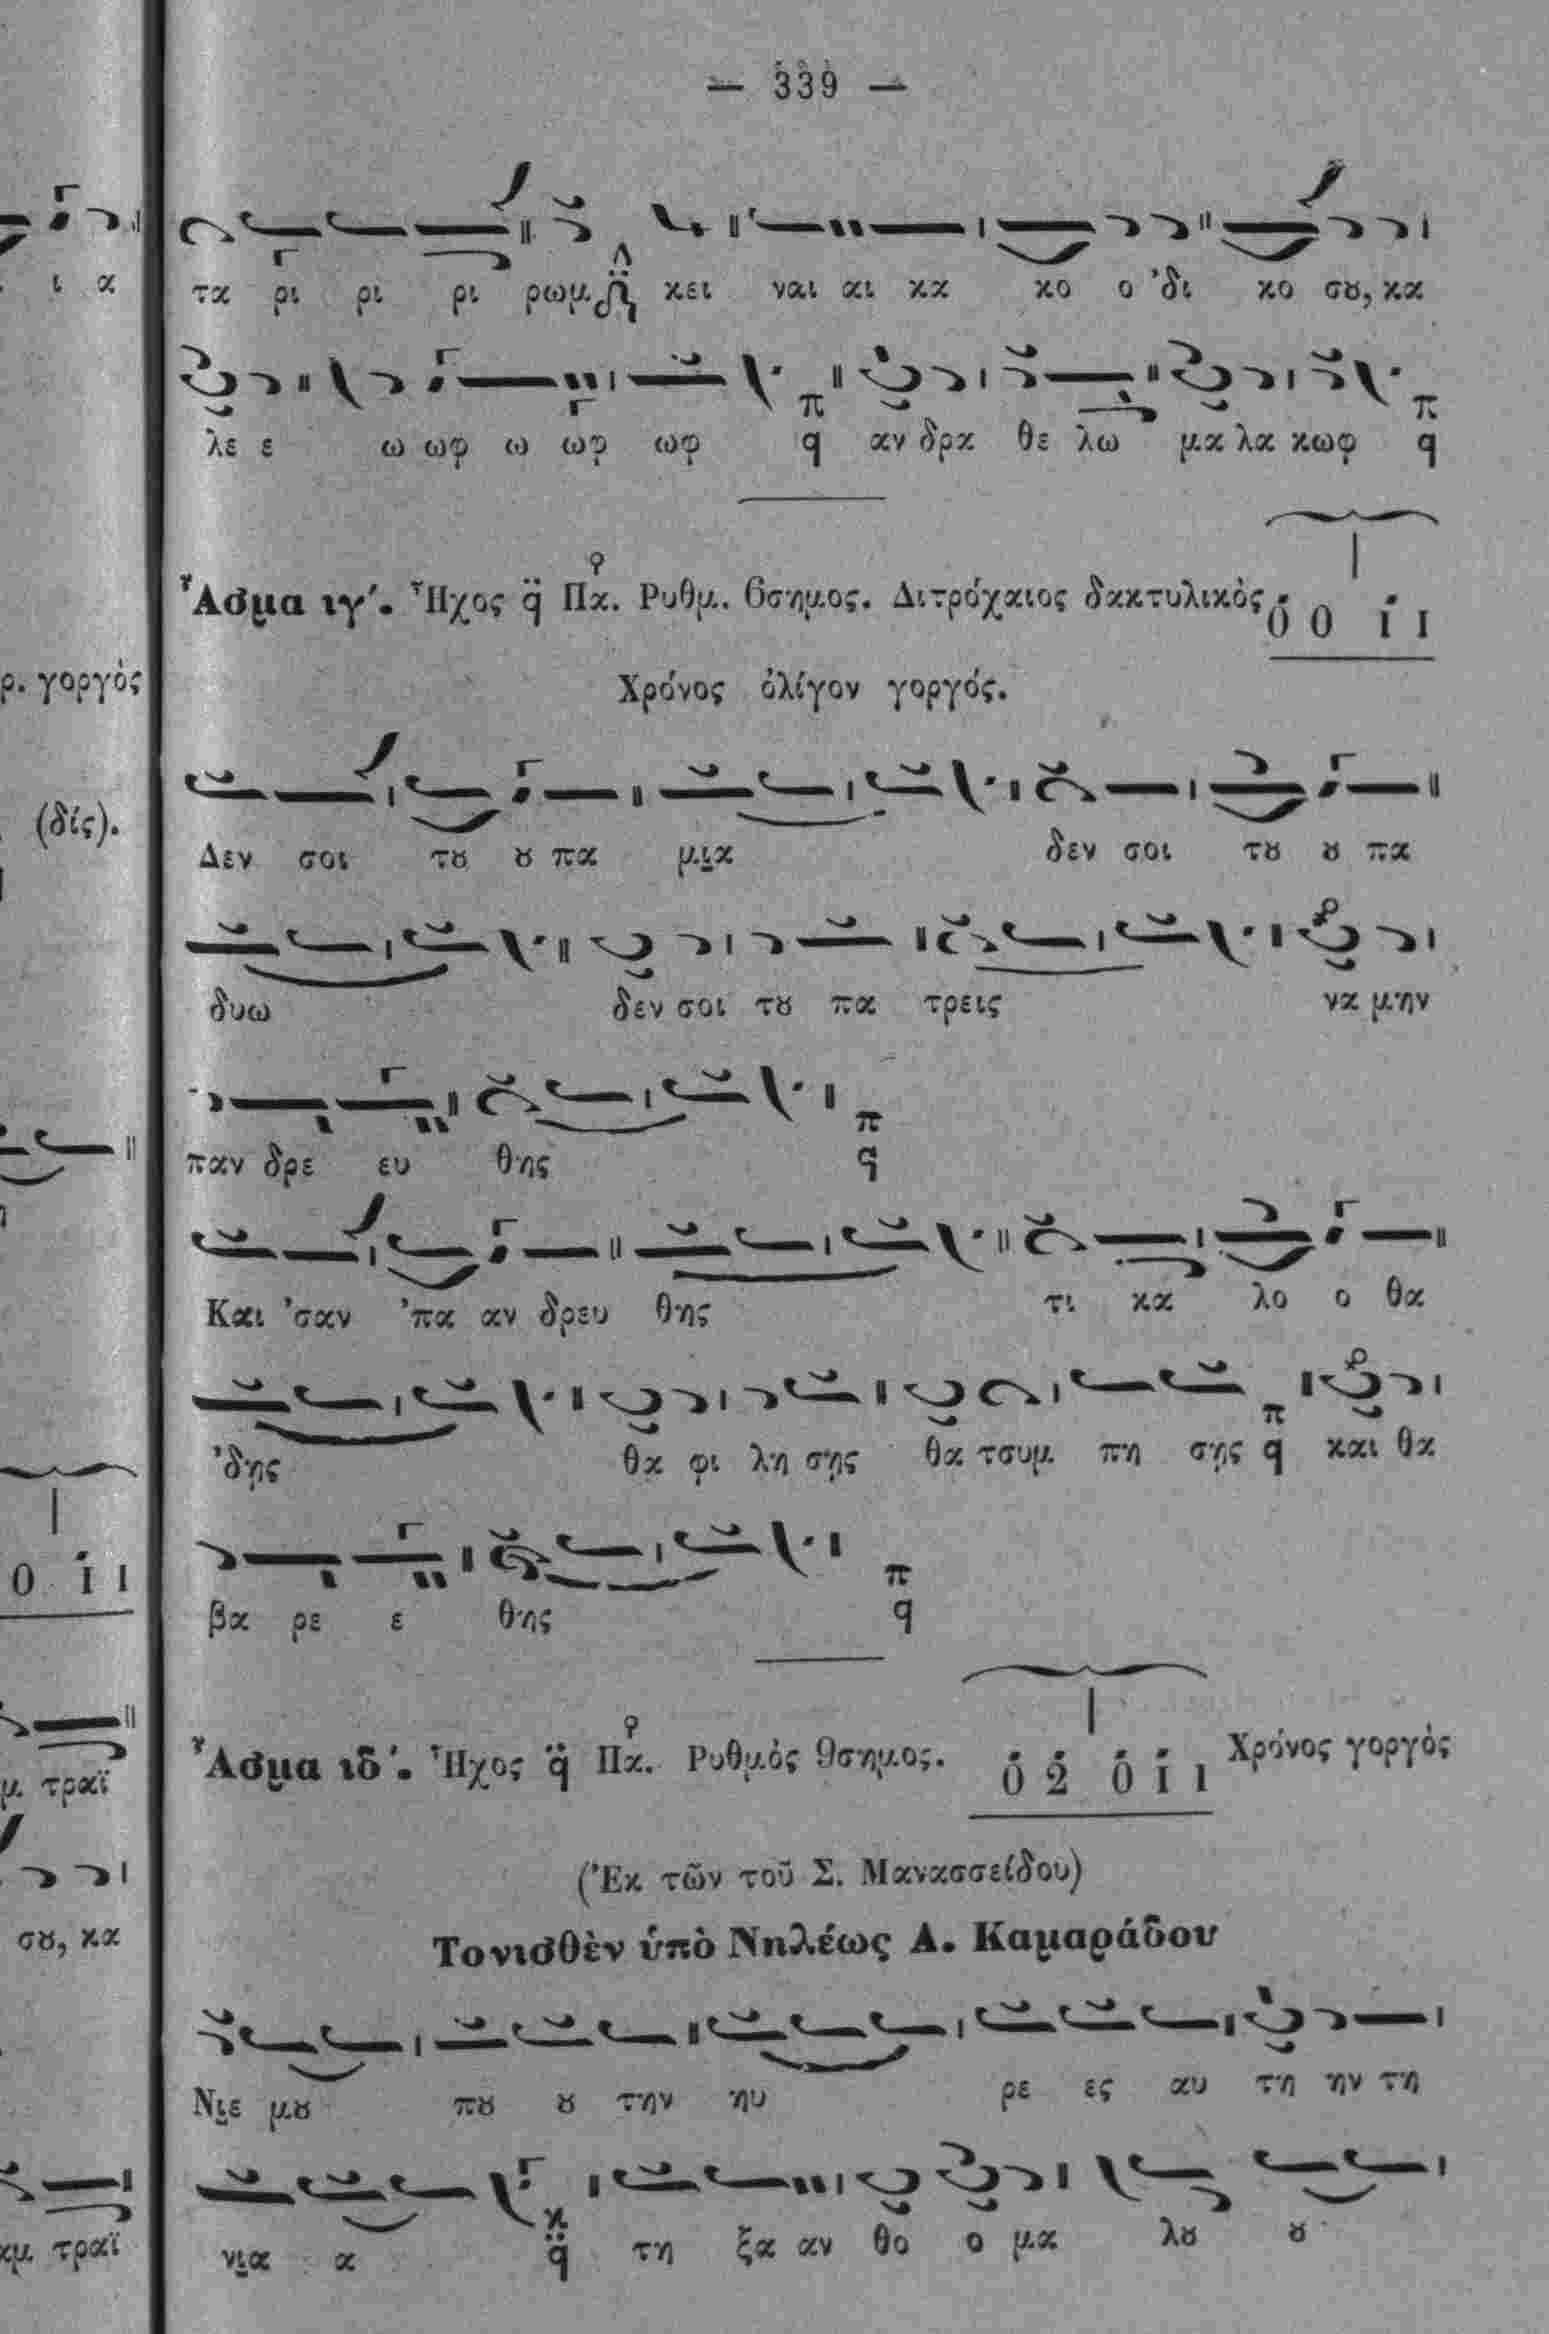 — 339 —
τα ρι ρι ρι ρωμ κει ναι αι κα κο ο 'δι κο σȣ, κα
λε ε ω ωφ ω ωφ ωφ π q αν δρα θε λω μα λα κωφ π q
Ἆσμα ιγ΄. Ἦχος q̈ Πα. Ρυθμ. 6σημος. Διτρόχαιος δακτυλικὸς 0 0 1 1
Χρόνος ὀλίγον γοργός.
Δεν σοι τȣ ȣ πα μια δεν σοι τȣ ȣ πα
δυω δεν σοι τȣ πα τρεις να μην
παν δρε ευ θης π q
Και 'σαν 'πα αν δρευ θης τι κα λο ο θα
'δῃς θα φι λη σῃς θα τσυμ πη σῃς π q και θα
βα ρε ε θῃς π q
Ἆσμα ιδ΄. Ἦχος q̈ Πα. Ρυθμὸς 9σημος. 0 2 0 1 1 Χρόνος γοργὸς
(Ἐκ τῶν τοῦ Σ. Μανασσείδου)
Τονισθὲν ὑπὸ Νηλέως Α. Καμαράδου
Νιε μȣ πȣ ȣ την ηυ ρε ες αυ τη ην τη
νια α κ q̈ τη ξα αν θο ο μα λȣ ȣ
ι α
ρ. γοργὸς
(δίς).
0 1 1
μ. τραϊ
σȣ, κα
αμ τραϊ